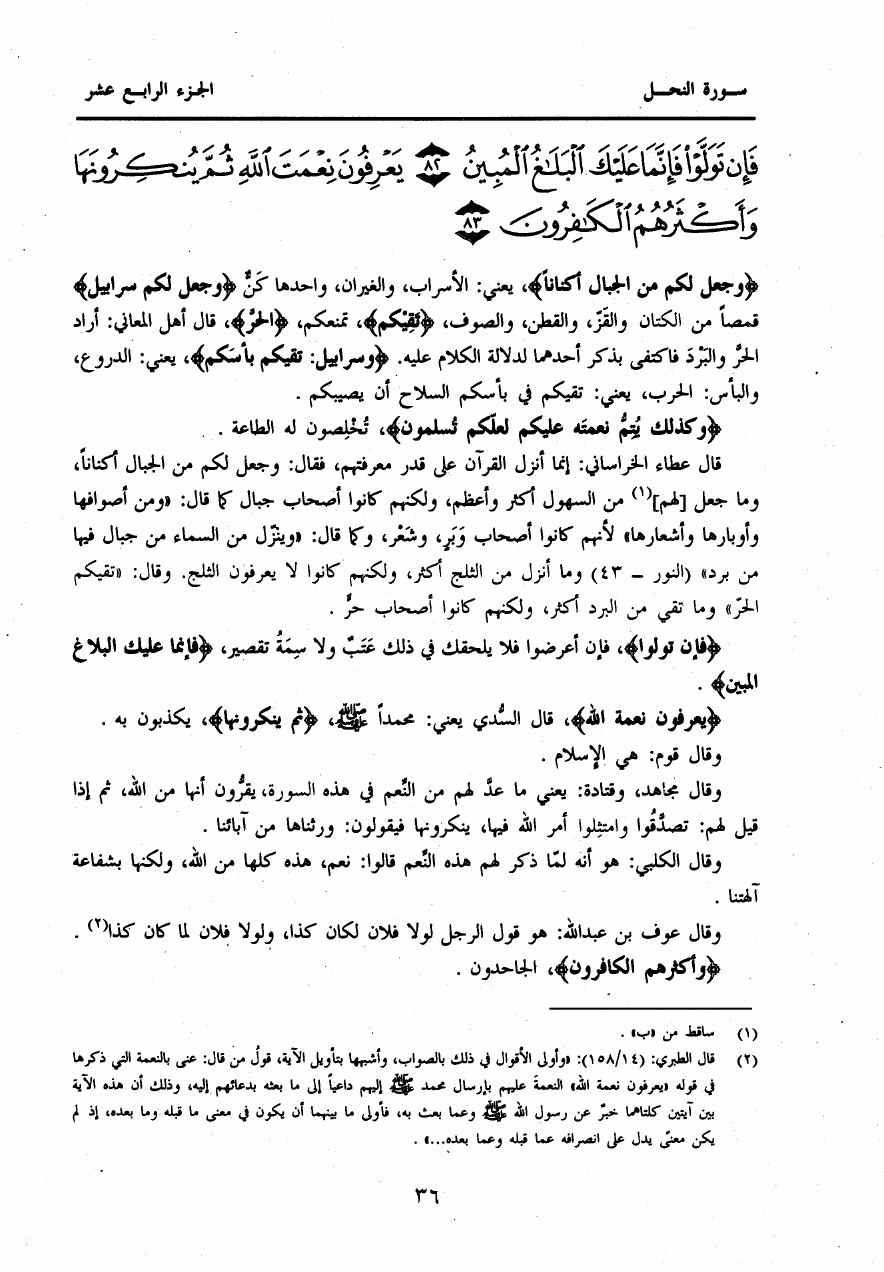 سـورة النحـــل
الجزء الرابـع عشر
فَإِن تَوَلَّوْا۟ فَإِنَّمَا عَلَيْكَ ٱلْبَلَـٰغُ ٱلْمُبِينُ ﴿٨٢﴾ يَعْرِفُونَ نِعْمَتَ ٱللَّهِ ثُمَّ يُنكِرُونَهَا
وَأَكْثَرُهُمُ ٱلْكَـٰفِرُونَ ﴿٨٣﴾
﴿وجعل لكم من الجبال أكناناً﴾، يعني: الأسراب، والغيران، واحدها كَنٌّ ﴿وجعل لكم سرابيل﴾
قمصاً من الكتان والقَزّ، والقطن، والصوف، ﴿تَقِيْكم﴾، تمنعكم، ﴿الحَرَّ﴾، قال أهل المعاني: أراد
الحرَّ والبَرْدَ فاكتفى بذكر أحدهما لدلالة الكلام عليه. ﴿وسرابيل: تقيكم بأسَكم﴾، يعني: الدروع،
والبأس: الحرب، يعني: تقيكم في بأسكم السلاح أن يصيبكم .
﴿وكذلك يُتِمُّ نعمتَه عليكم لعلّكم تُسلمون﴾، تُخْلِصون له الطاعة .
قال عطاء الخراساني: إنما أنزل القرآن على قدر معرفتهم، فقال: وجعل لكم من الجبال أكناناً،
وما جعل [لهم](١) من السهول أكثر وأعظم، ولكنهم كانوا أصحاب جبال كما قال: «ومن أصوافها
وأوبارها وأشعارها» لأنهم كانوا أصحاب وَبَرٍ، وشَعْر، وكما قال: «وينزّل من السماء من جبال فيها
من برد» (النور – ٤٣) وما أنزل من الثلج أكثر، ولكنهم كانوا لا يعرفون الثلج. وقال: «تقيكم
الحرّ» وما تقي من البرد أكثر، ولكنهم كانوا أصحاب حرٍّ .
﴿فإن تولوا﴾، فإن أعرضوا فلا يلحقك في ذلك عَتَبٌ ولا سِمَةُ تقصير، ﴿فإنما عليك البلاغ
المبين﴾ .
﴿يعرفون نعمة الله﴾، قال السُّدي يعني: محمداً ﷺ، ﴿ثم ينكرونها﴾، يكذبون به .
وقال قوم: هي الإسلام .
وقال مجاهد، وقتادة: يعني ما عدَّ لهم من النِّعم في هذه السورة، يقرُّون أنها من الله، ثم إذا
قيل لهم: تصدَّقُوا وامتثِلوا أمر الله فيها، ينكرونها فيقولون: ورثناها من آبائنا .
وقال الكلبي: هو أنه لمّا ذكر لهم هذه النِّعم قالوا: نعم، هذه كلها من الله، ولكنها بشفاعة
آلهتنا .
وقال عوف بن عبدالله: هو قول الرجل لولا فلان لكان كذا، ولولا فلان لما كان كذا(٢) .
﴿وأكثرهم الكافرون﴾، الجاحدون .
(١) ساقط من «ب» .
(٢) قال الطبري: (١٥٨/١٤): «وأولى الأقوال في ذلك بالصواب، وأشبهها بتأويل الآية، قولُ من قال: عنى بالنعمة التي ذكرها
في قوله «يعرفون نعمة الله» النعمةَ عليهم بإرسال محمد ﷺ إليهم داعياً إلى ما بعثه بدعائهم إليه، وذلك أن هذه الآية
بين آيتين كلتاهما خبرٌ عن رسول الله ﷺ وعما بعث به، فأولى ما بينهما أن يكون في معنى ما قبله وما بعده، إذ لم
يكن معنىً يدل على انصرافه عما قبله وعما بعده...» .
٣٦